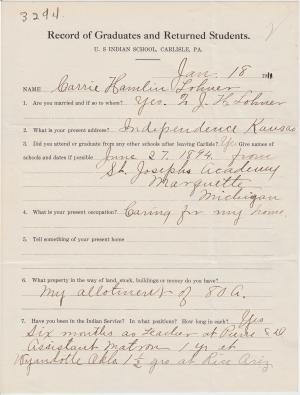 3294.
2
Record of Graduates and Returned Students.
U. S INDIAN SCHOOL, CARLISLE, PA.
Jan. 18 191
NAME Carrie Hamlin Lohner
1. Are you married and if so to whom? Yes. To J. H. Lohner
2. What is your present address? Independence Kansas
3. Did you attend or graduate from any other schools after leaving Carlisle? Yes Give names of
schools and dates if possible June 27. 1894. from
St. Josephs Academy
Marquette
Michigan
4. What is your present occupation? Caring for my home.
5. Tell something of your present home
6. What property in the way of land, stock, buildings or money do you have?
My allotment of 80 A.
7. Have you been in the Indian Service? In what positions? How long in each? Yes
Six months as teacher at Pierre S D.
Assistant Matron 1 yr at
Wyandotte Okla 1½ yrs at Rice Ariz